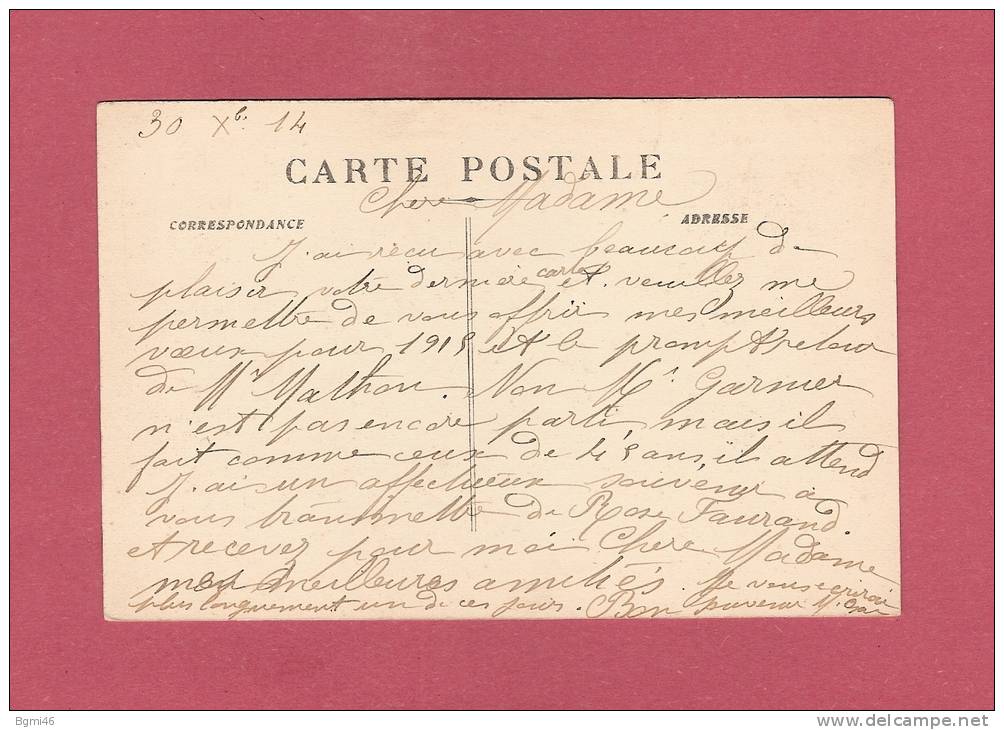 30 Xb. 14
CARTE POSTALE
Chere Madame
CORRESPONDANCE
ADRESSE
J'ai reçu avec beaucoup de
plaisir votre derniere carte et veuillez me
permettre de vous offrir mes meilleurs
vœux pour 1915 et le prompt retour
de Mr Mathon. Non Mr. Garnier
n'est pas encore parti, mais il
fait comme ceux de 45 ans, il attend
J'ai un affectueux souvenir à
vous transmettre de Rose Faurand.
et recevez pour moi Chere Madame
mes meilleures amitiés. Je vous écrirai
plus longuement un de ces jours. Bon souvenir M.
Bgmi46
www.delcampe.net